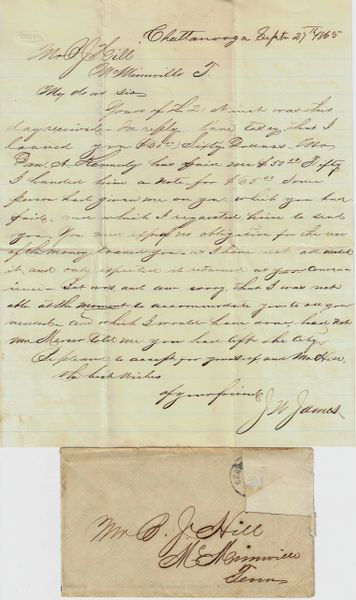 Chattanooga Sept 27th 1865
Mr B J Hill
McMinnville T.
My dear Sir
Yours of the 21st inst was this
day received. In reply have to say that I
loaned you $60.00 Sixty Dollars. Mr
A Kennedy has paid me $50.00 Fifty
I handed him a Note for $65.00 Some
person had given me on you which you had
paid, and which I requested him to send
you. You are under no obligation for the use
of the money loaned you, as I have not needed
it and only expected it returned at your conve-
nience - I was and am sorry that I was not
able at the moment to accommodate you to all you
needed - and which I would have done, had not
Mr Mercer told me you had left the City
Please to accept for yourself and Mrs Hill,
the best wishes
of your friend
J W James
Mr B. J. Hill
McMinnville
Tenn